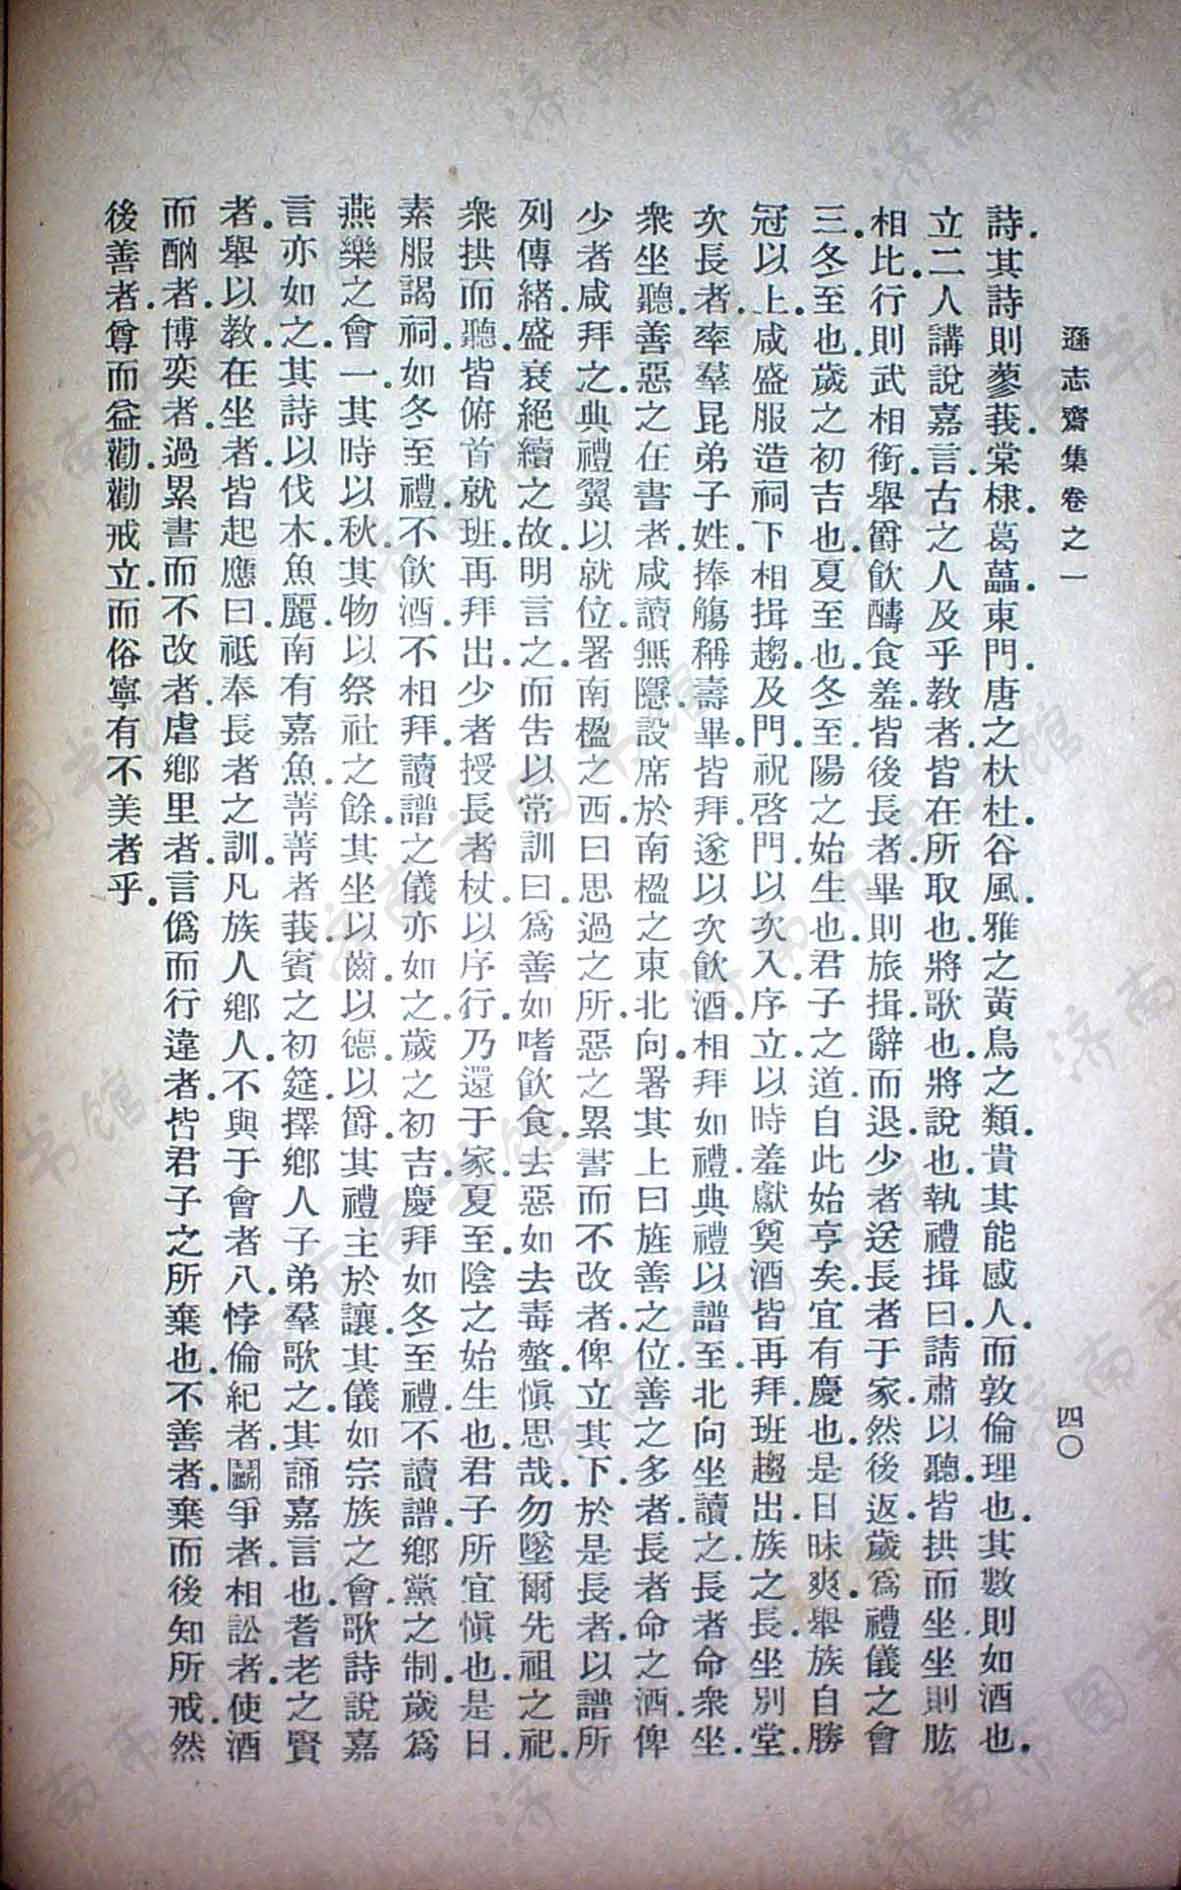 遜志齋集卷之一
四〇
詩．其詩則蓼莪．棠棣．葛藟．東門．唐之杕杜．谷風．雅之黃鳥之類．貴其能感人．而敦倫理也．其數則如酒也．
立二人講說嘉言．古之人及乎教者．皆在所取也．將歌也．將說也．執禮揖曰．請肅以聽．皆拱而坐．坐則肱
相比．行則武相銜．舉爵飮醻食羞．皆後長者．畢則旅揖．辭而退．少者送長者于家．然後返．歲爲禮儀之會
三．冬至也．歲之初吉也．夏至也．冬至．陽之始生也．君子之道自此始亨矣．宜有慶也．是日昧爽．舉族自勝
冠以上．咸盛服造祠下．相揖趨．及門．祝啓門．以次入．序立．以時羞獻奠酒．皆再拜．班趨出．族之長坐別堂．
次長者．率羣昆弟子姓．捧觴稱壽．畢．皆拜．遂以次飮酒．相拜如禮．典禮以譜至．北向坐讀之．長者命衆坐．
衆坐聽．善惡之在書者．咸讀無隱．設席於南楹之東．北向．署其上曰旌善之位．善之多者．長者命之酒．俾
少者咸拜之．典禮翼以就位．署南楹之西．曰思過之所．惡之累書而不改者．俾立其下．於是長者．以譜所
列傳緒．盛衰絕續之故．明言之．而告以常訓曰．爲善如嗜飮食．去惡如去毒螫．愼思哉．勿墜爾先祖之祀．
衆拱而聽．皆俯首就班．再拜出．少者授長者杖．以序行．乃還于家．夏至．陰之始生也．君子所宜愼也．是日．
素服謁祠．如冬至禮．不飮酒．不相拜．讀譜之儀亦如之．歲之初吉．慶拜如冬至禮．不讀譜．鄉黨之制．歲爲
燕樂之會一．其時以秋．其物以祭社之餘．其坐以齒以德．以爵．其禮主於讓．其儀如宗族之會．歌詩說嘉
言亦如之．其詩以伐木．魚麗．南有嘉魚．菁菁者莪．賓之初筵．擇鄉人子弟羣歌之．其誦嘉言也．耆老之賢
者．舉以教．在坐者．皆起應曰．祗奉長者之訓．凡族人鄉人．不與于會者八．悖倫紀者．鬬爭者．相訟者．使酒
而酗者．博奕者．過累書而不改者．虐鄉里者．言僞而行違者．皆君子之所棄也．不善者．棄而後知所戒．然
後善者．尊而益勸．勸戒立．而俗寧有不美者乎．